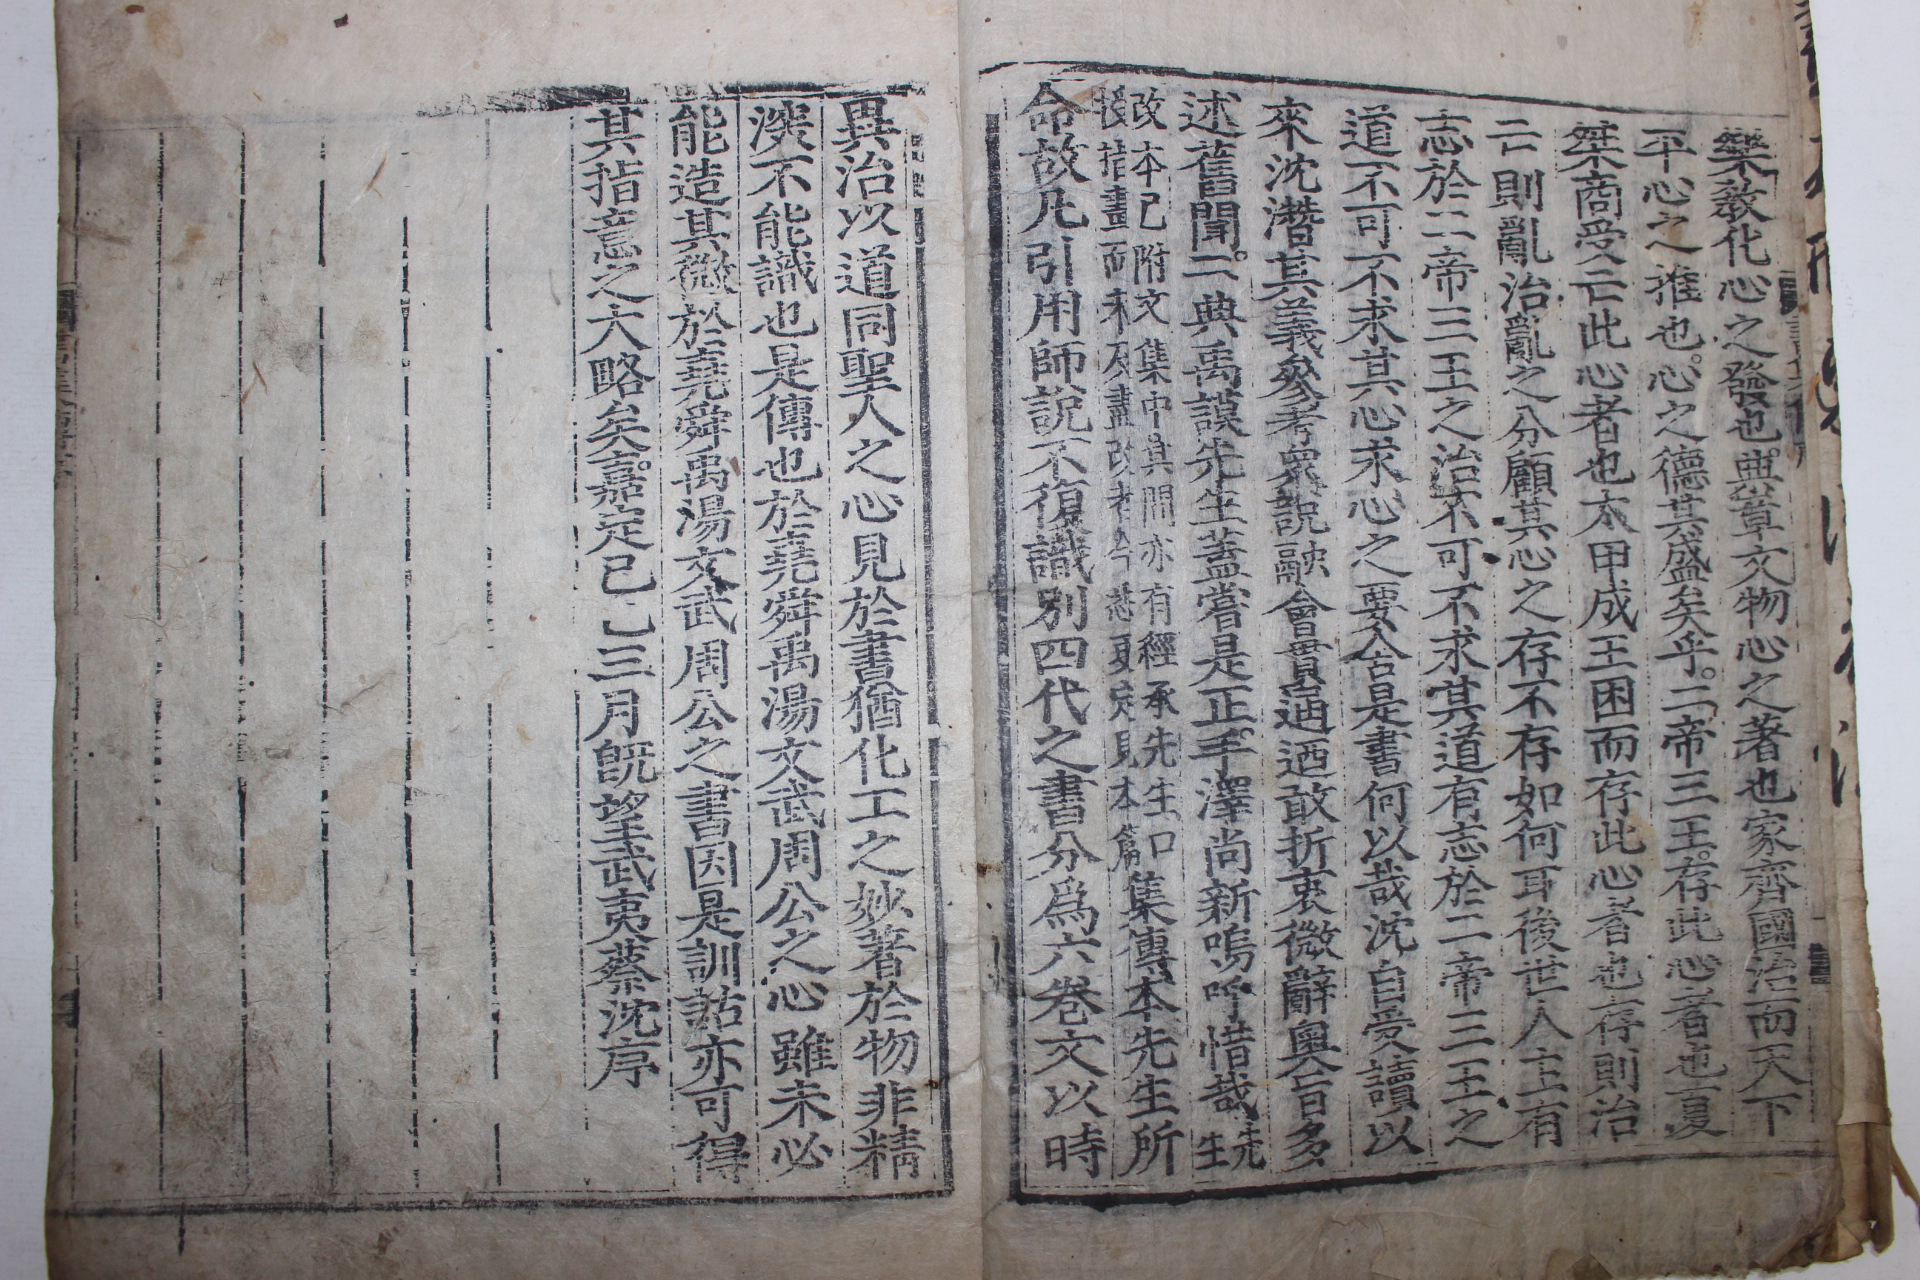 樂敎化心之發也典章文物心之著也家齊國治而天下
平心之推也心之德其盛矣乎二帝三王存此心者也夏
桀商受亡此心者也太甲成王困而存此心者也存則治
亡則亂治亂之分顧其心之存不存如何耳後世人主有
志於二帝三王之治不可不求其道有志於二帝三王之
道不可不求其心求心之要舍是書何以哉沈自受讀以
來沈潛其義參考衆說融會貫通迺敢折衷微辭奧旨多
述舊聞二典禹謨先生蓋嘗是正手澤尚新嗚呼惜哉先生
改本已附文集中其間亦有經承先生口
授指畫而未及盡改者今悉更定見本篇
集傳本先生所
命故凡引用師說不復識別四代之書分爲六卷文以時
異治以道同聖人之心見於書猶化工之妙著於物非精
深不能識也是傳也於堯舜禹湯文武周公之心雖未必
能造其微於堯舜禹湯文武周公之書因是訓詁亦可得
其指意之大略矣嘉定己巳三月旣望武夷蔡沈序